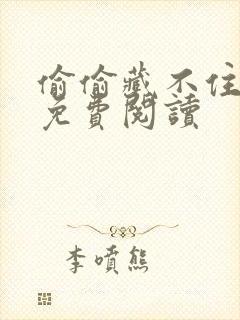 偷偷藏不住
免費閱讀
李噴熊